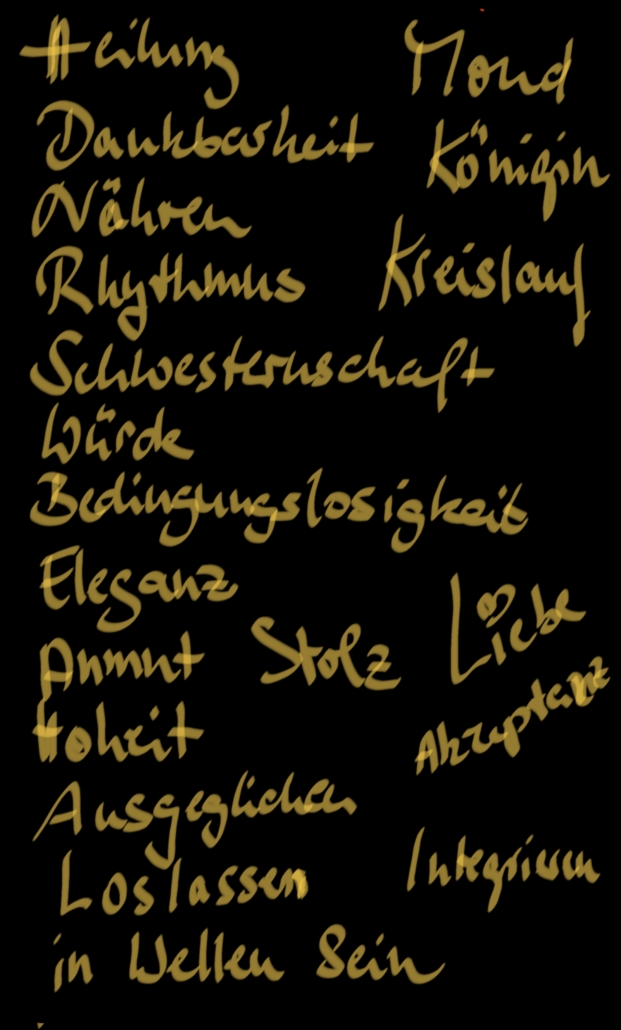 Heilung
Mond
Dankbarkeit
Königin
Nähren
Rhythmus
Kreislauf
Schwesternschaft
Würde
Bedingungslosigkeit
Eleganz
Liebe
Anmut
Stolz
Akzeptanz
Hoheit
Ausgeglichen
Loslassen
Integrieren
in Wellen Sein